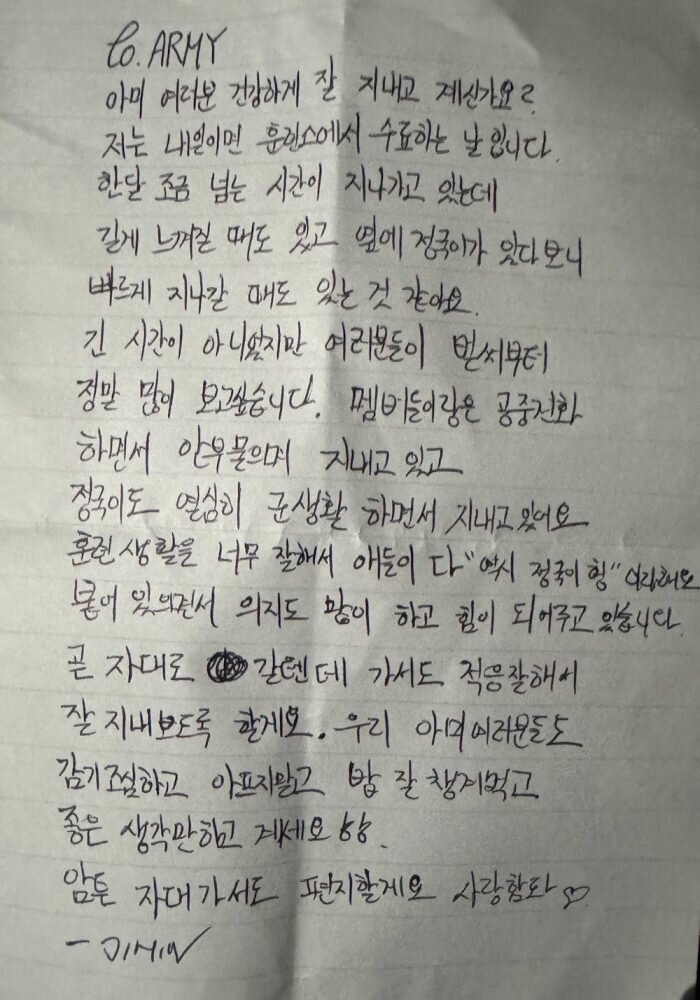 To. ARMY
아미 여러분 건강하게 잘 지내고 계신가요?
저는 내일이면 훈련소에서 수료하는 날입니다.
한달 조금 넘는 시간이 지나가고 있는데
길게 느껴질 때도 있고 옆에 정국이가 있다보니
빠르게 지나갈 때도 있는 것 같아요.
긴 시간이 아니였지만 여러분들이 벌써부터
정말 많이 보고싶습니다. 멤버들이랑은 공중전화
하면서 안부물으며 지내고 있고
정국이도 열심히 군생활 하면서 지내고있어요
훈련생활을 너무 잘해서 애들이 다 "역시 정국이 형" 이라해요
붙어 있으면서 의지도 많이 하고 힘이 되어주고 있습니다.
곧 자대로 갈텐데 가서도 적응잘해서
잘 지내보도록 할게요. 우리 아미여러분들도
감기조심하고 아프지말고 밥 잘 챙겨먹고
좋은 생각만하고 계세요 ㅎㅎ.
암튼 자대가서도 편지할게요 사랑함다 ♡
- JIMIN